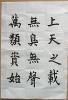 上天之載
無臭無聲
萬類資始